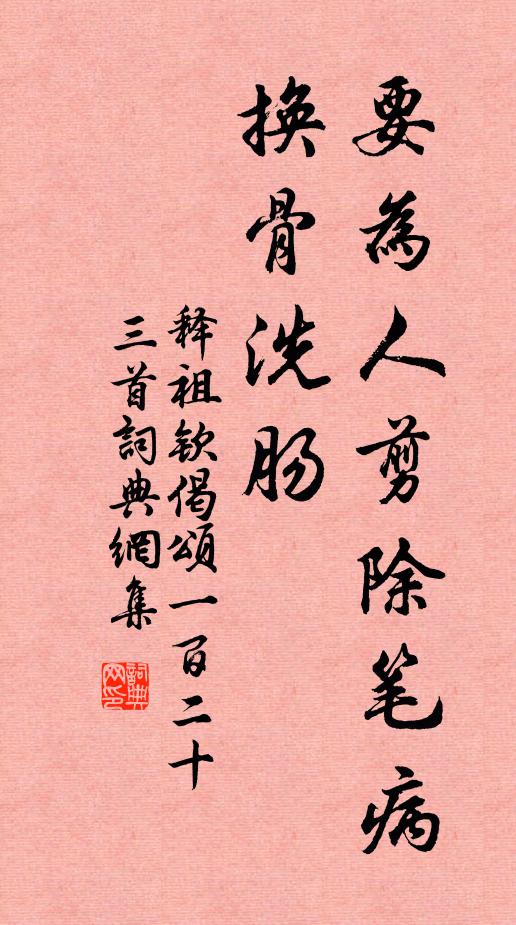 要為人剪除笔病
換骨洗肠
释祖钦偈頌一百二十
三首詞典網集
詞典
网印